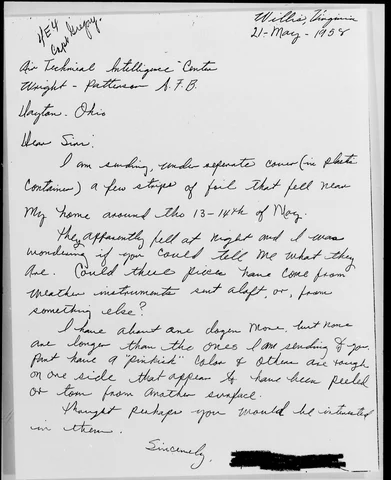 Willis, Virginia
21-May-1958
4E4
Capt Gregory
Air Technical Intelligence Center
Wright-Patterson A.F.B.
Dayton, Ohio
Dear Sirs:
I am sending, under seperate cover (in plastic
container) a few strips of foil that fell near
my home around the 13-14th of May.
They apparently fell at night and I was
wondering if you could tell me what they
are. Could these pieces have come from
weather instruments sent aloft, or, from
something else?
I have about one dozen more, but none
are longer than the ones I am sending to you.
have a "pinkish" color & others are rough
on one side that appear to have been peeled
or torn from another surface.
Thought perhaps you would be interested
in them.
Sincerely,